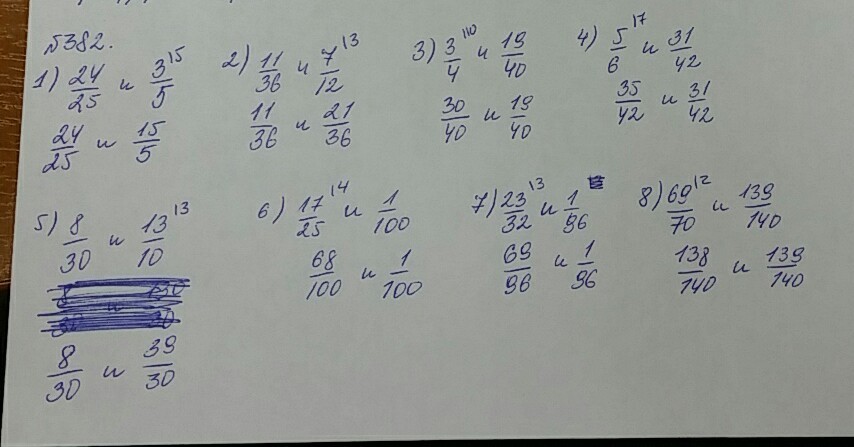 №382.
1) 24/25 и 3/5 \5
24/25 и 15/5
2) 11/36 и 7/12 \3
11/36 и 21/36
3) 3/4 \10 и 19/40
30/40 и 19/40
4) 5/6 \7 и 31/42
35/42 и 31/42
5) 8/30 и 13/10 \3
8/30 и 39/30
6) 17/25 \4 и 1/100
68/100 и 1/100
7) 23/32 \3 и 1/96
69/96 и 1/96
8) 69/70 \2 и 139/140
138/140 и 139/140